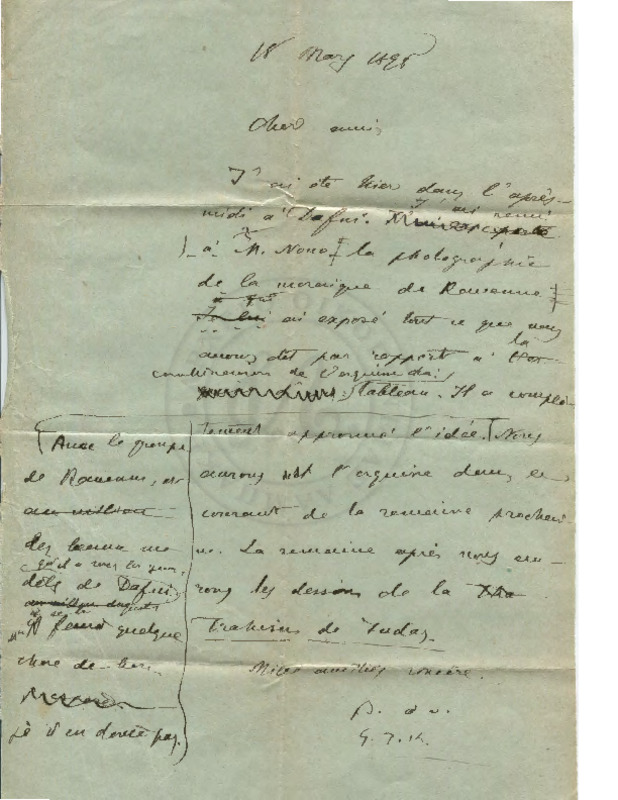 18 Mars 189
Cher ami,
J'ai été hier dans l'après-
midi à Dafni. J'ai remi
à M. Nono la photographie
de la mosaique de Ravenne
à qui
ai exposé tout ce que nous
avons dit par rapport à la
combinaison de l'esquisse du
tableau. Il a complè-
tement approuvé l'idée. Nous
aurons l'esquisse dans le
courant de la semaine prochai-
ne. La semaine après nous au-
rons les dessins de la
Trahison de Judas.
Mille amitiés sincère.
Avec le groupe
de Ravenne, et
des beaux mo-
qu'il a sous les yeux,
dèls de Dafni
on fera quelque
chose de bon
je n'en doute pas.